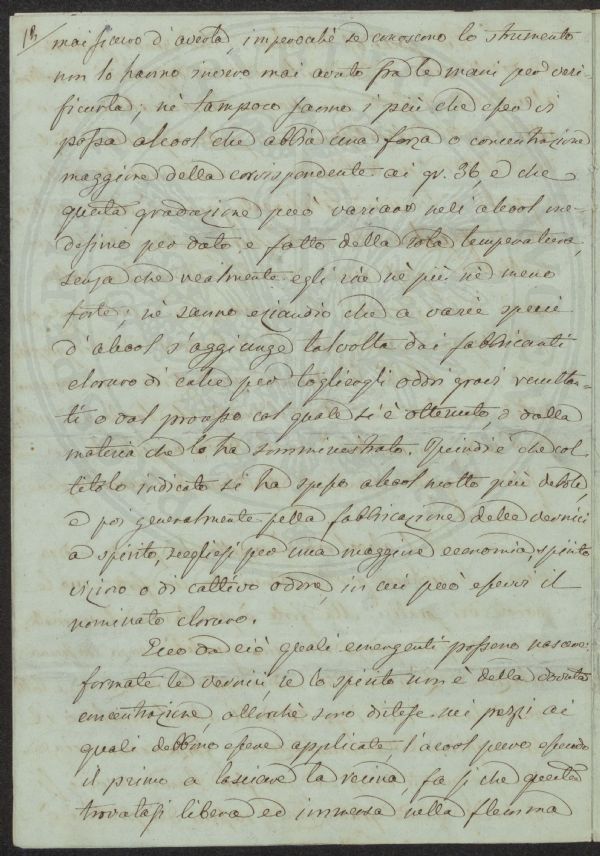 13/
mai sicuro d'averla, imperocchè se conoscono lo strumento
non lo hanno invero mai avuto fra le mani per veri=
ficarla; nè tampoco sanno i più che esservi
possa alcool che abbia una forza o concentrazione
maggiore della corrispondente ai gr. 36, e che
questa gradazione può variare nell'alcool me=
desimo per dato e fatto della sola temperatura,
senza che realmente egli sia nè più nè meno
forte; nè sanno eziandio che a varie specie
d'alcool s'aggiunge talvolta dai fabbricanti
cloruro di calce per togliergli odori gravi resultan=
ti o dal processo col quale si è ottenuto, o dalla
materia che lo ha somministrato. Quindi è che col
titolo indicato si ha spesso alcool molto più debole,
e poi generalmente nella fabbricazione delle vernici
a spirito, scegliesi per una maggiore economia, spirito
o di cattivo odore, in cui può esservi il
nominato cloruro.
Ecco da ciò quali emergenti possono nascere:
formate le vernici, se lo spirito non è della dovuta
concentrazione, allorchè sono distese nei pezzi ai
quali debbono essere applicate, l'alcool puro essendo
il primo a lasciare la resina, fa sì che questa
trovatasi libera ed immersa nella flemma